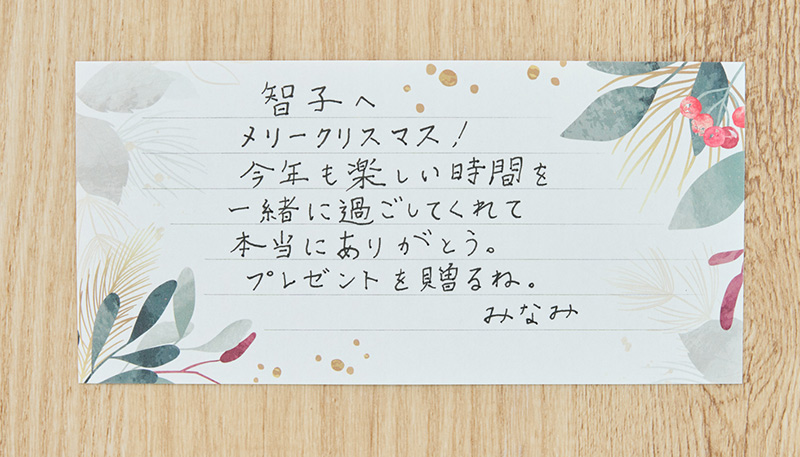 智子へ
メリークリスマス！
今年も楽しい時間を
一緒に過ごしてくれて
本当にありがとう。
プレゼントを贈るね。
みなみ